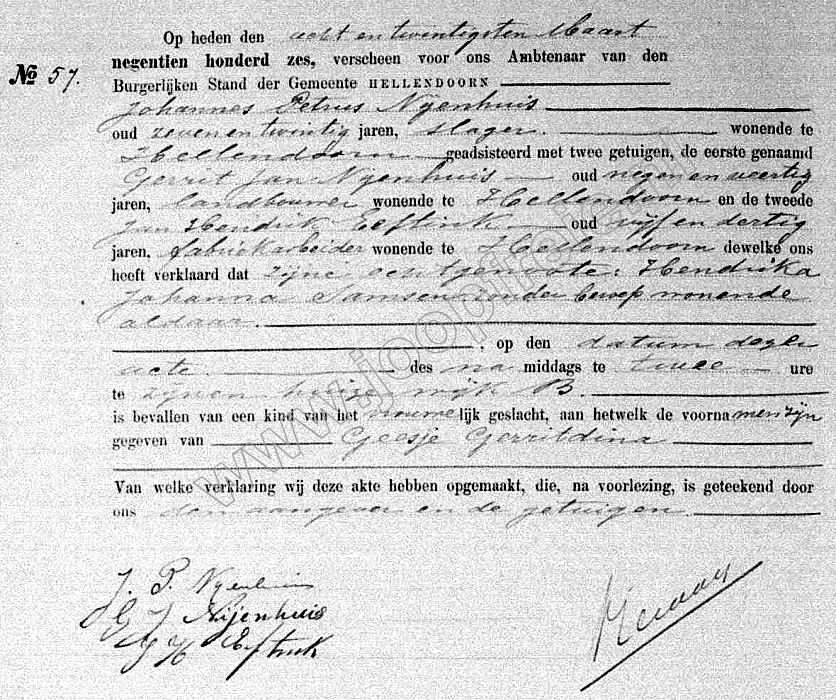 Op heden den acht en twintigsten Maart
negentien honderd zes, verscheen voor ons Ambtenaar van den
№ 57.
Burgerlijken Stand der Gemeente HELLENDOORN
Johannes Petrus Nijenhuis
oud zeven en twintig jaren, slager. wonende te
Hellendoorn geadsisteerd met twee getuigen, de eerste genaamd
Gerrit Jan Nijenhuis oud negen en veertig
jaren, landbouwer wonende te Hellendoorn en de tweede
Jan Hendrik Eeftink oud vijf en dertig
jaren, fabriekarbeider wonende te Hellendoorn dewelke ons
heeft verklaard dat zijne echtgenoote: Hendrika
Johanna Samsen zonder beroep wonende
aldaar.
, op den datum dezer
acte des na middags te twee ure
te zijnen huize wijk B.
is bevallen van een kind van het vrouwelijk geslacht, aan hetwelk de voornamen zijn
gegeven van Geesje Gerritdina
Van welke verklaring wij deze akte hebben opgemaakt, die, na voorlezing, is geteekend door
ons den aangever en de getuigen.
J. P. Nijenhuis
G J Nijenhuis
J H Eftink